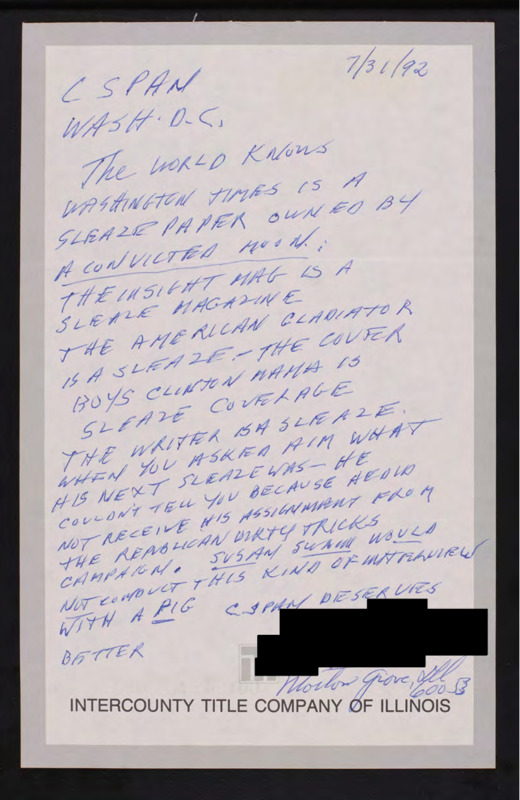 7/31/92
C SPAN
WASH. D.C.
The WORLD KNOWS
WASHINGTON TIMES IS A
SLEAZE PAPER OWNED BY
A CONVICTED MOON.:
THE INSIGHT MAG IS A
SLEAZE MAGAZINE
THE AMERICAN GLADIATOR
IS A SLEAZE - THE COVER
BOYS CLINTON MAMA IS
SLEAZE COVERAGE
THE WRITER IS A SLEAZE.
WHEN YOU ASKED HIM WHAT
HIS NEXT SLEAZE WAS - HE
COULDN'T TELL YOU BECAUSE HE DID
NOT RECEIVE HIS ASSIGNMENT FROM
THE REPUBLICAN DIRTY TRICKS
CAMPAIGN. SUSAN SWAIN WOULD
NOT CONDUCT THIS KIND OF INTERVIEW
WITH A PIG CSPAN DESERVES
BETTER
Morton Grove, Ill
60053
INTERCOUNTY TITLE COMPANY OF ILLINOIS